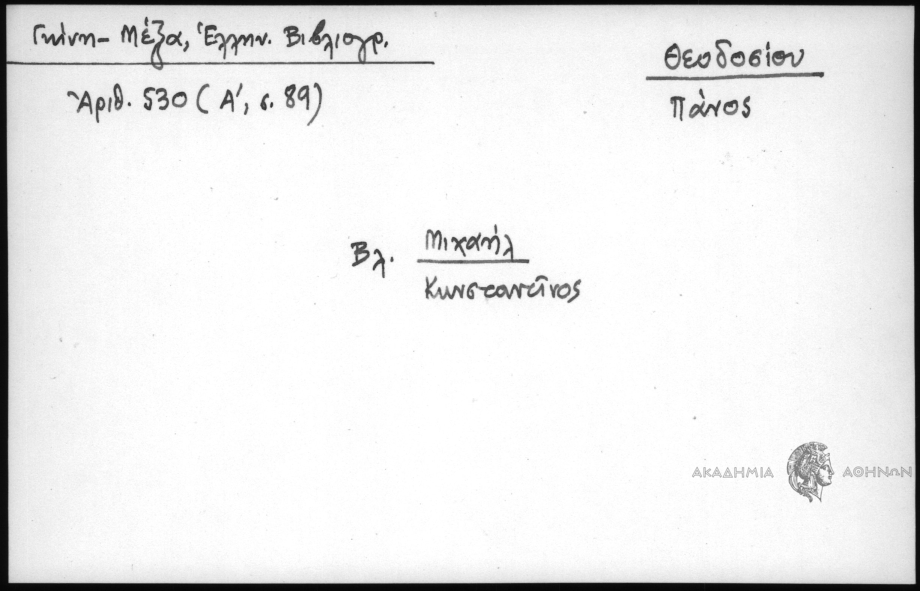 Γκίνη - Μέξα, Ἑλλην. Βιβλιογρ.
Ἀριθ. 530 (Α', σ. 89)
Θεοδοσίου
Πάνος
Βλ. Μιχαήλ
Κωνσταντῖνος
ΑΚΑΔΗΜΙΑ ΑΘΗΝΩΝ